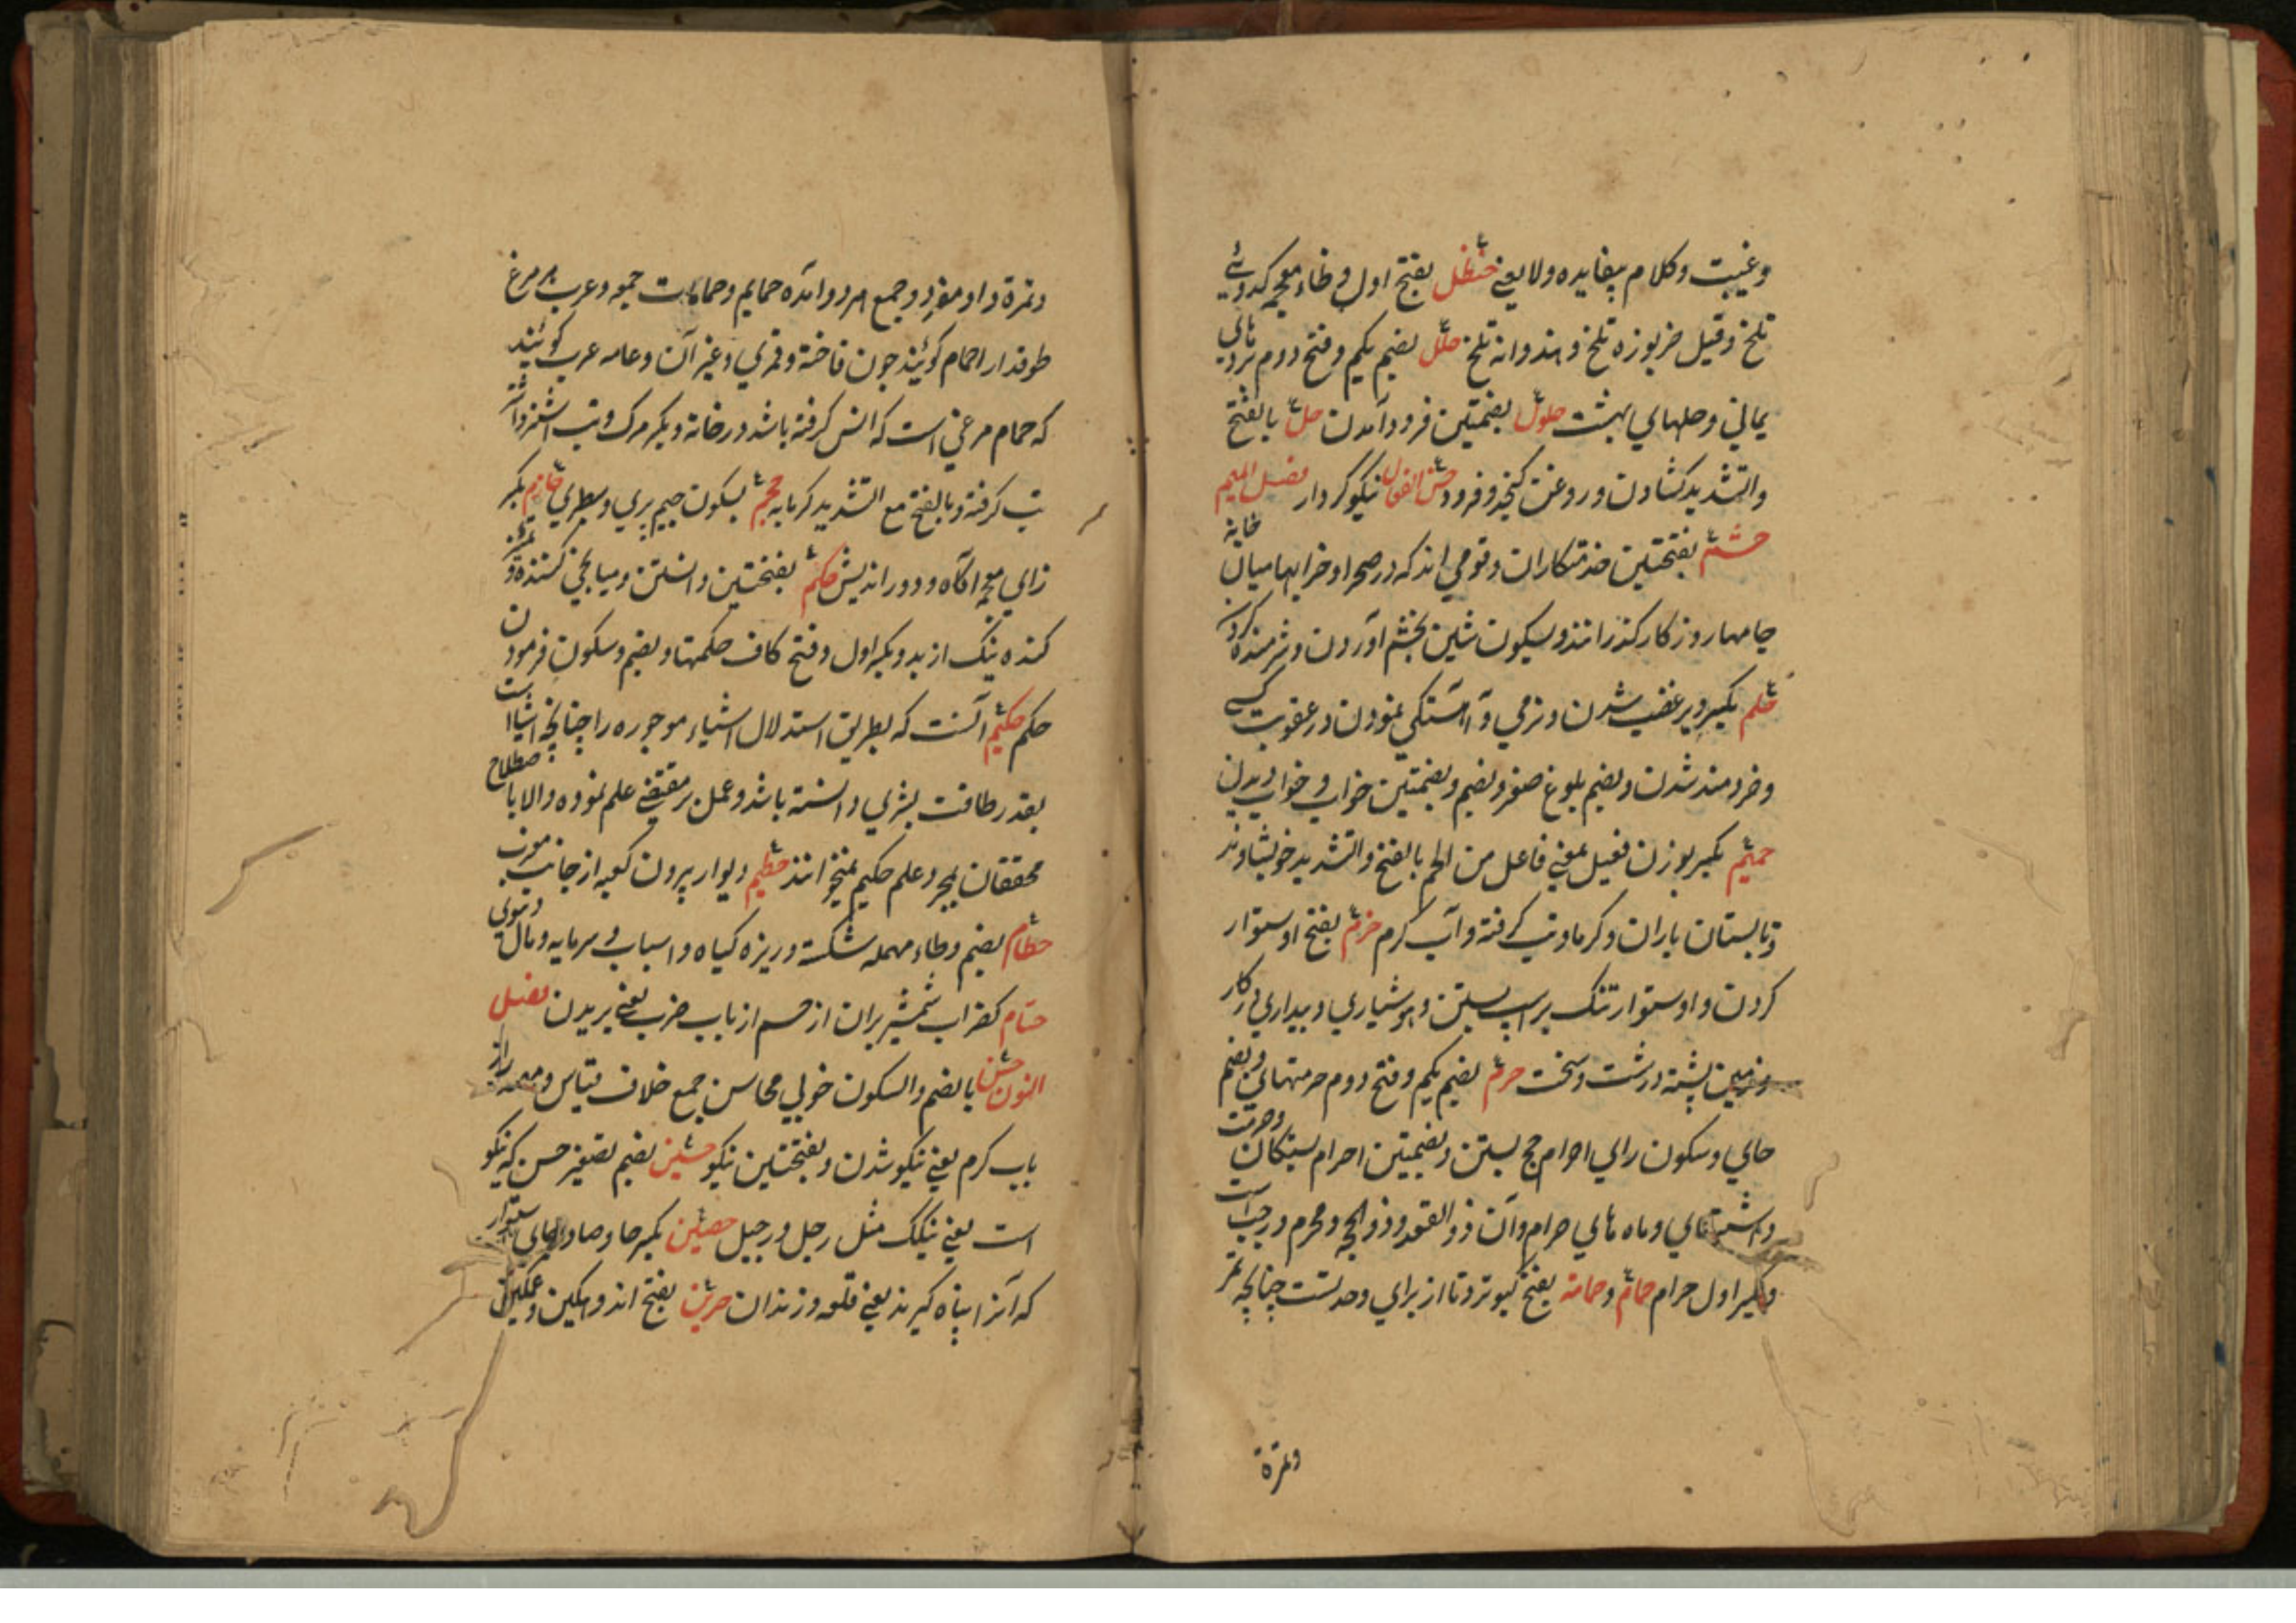 وغیبت وکلام بیفایده ولا یعنے حنظل بفتح اول و ظاء معجمه کدوئے
تلخ وقیل خربوزه تلخ و هندوانه تلخ حلل بضم یکم و فتح دوم بردهای
یمانی وحلهای بهشت حلول بضمتین فرود آمدن حل بالفتح
والتشدید کشادن و روغن کنجد و فرود حسن الفعال نیکو کردار فصل المیم
حشم بفتحتین خدمتکاران و قومی اند که در صحرا و خرابها میان خانه
جامها روزکار کذرانند و بسکون شین بخشم آوردن و شرمنده کردن
حلم بکسر دیر غضب شدن و نرمی و آهستکی نمودن در عقوبت کسی
وخردمند شدن و بضم بلوغ صغر و بضم و بضمتین خواب و خواب دیدن
حمیم بکسر بوزن فعیل بمعنے فاعل من الحم بالفتح والتشدید خویشاوند
وتابستان باران و کرما و تب کرفته و آب کرم حزم بفتح اوستوار
کردن و اوستوار تنک بر اسپ بستن و هوشیاری و بیداری در کار
وزمین پشته درشت و سخت حرم بضم یکم و فتح دوم حرمتهای و بضم
حای و سکون رای احرام حج بستن و بضمتین احرام بستکان وحرمت
داشتهای و ماه های حرام و آن ذو القعد و ذو الحجه و محرم و رجب است
وبکسر اول حرام حمام و حمامه بفتح کبوتر و تا از برای وحدتست چنانچه تمر
وتمرة
وتمرة و او مفرد و جمع هر دو آمده حمایم و حمامات جمع و عرب هر مرغ
طوقدار را حمام کوئیند چون فاخته و قمری و غیر آن و عامه عرب کوئیند
که حمام مرغی است که انس کرفته باشد در خانه و بکسر مرک و تب
تب کرفته و بالفتح مع التشدید کرمابه حجم بسکون جیم بری و سطبری حازم بکسر
زای معجمه آکاه و دور اندیش حکم بفتحتین دانستن و میانجی کننده و تمیز
کننده نیک از بد و بکسر اول و فتح کاف حکمتها و بضم و سکون فرمودن
حکم حکیم آنست که بطریق استدلال اشیاء موجوره را چنانچه اشیا است
بقدر طاقت بشری دانسته باشد و عمل بر مقتضے علم نموده والا باصطلاح
محققان بمجرد علم حکیم نمیخوانند حطیم دیوار بیرون کعبه از جانب مغرب
حطام بضم و طاء مهمله شکسته و ریزه کیاه و اسباب و سرمایه و مال دنیوی
حسام کغراب شمشیر بران از حسم از باب ضرب یعنے بریدن فصل
النون حسن بالضم والسکون خوبی محاسن جمع خلاف قیاس و مصدر از
باب کرم یعنے نیکو شدن و بفتحتین نیکو حسین بضم تصغیر حسن که نیکو
است یعنے نیکک مثل رجل و رجیل حصین بکسر حا و صاد جای استوار
که آنرا پناه کیرند یعنے قلعه و زندان حزین بفتح اندوهکین و غمکین